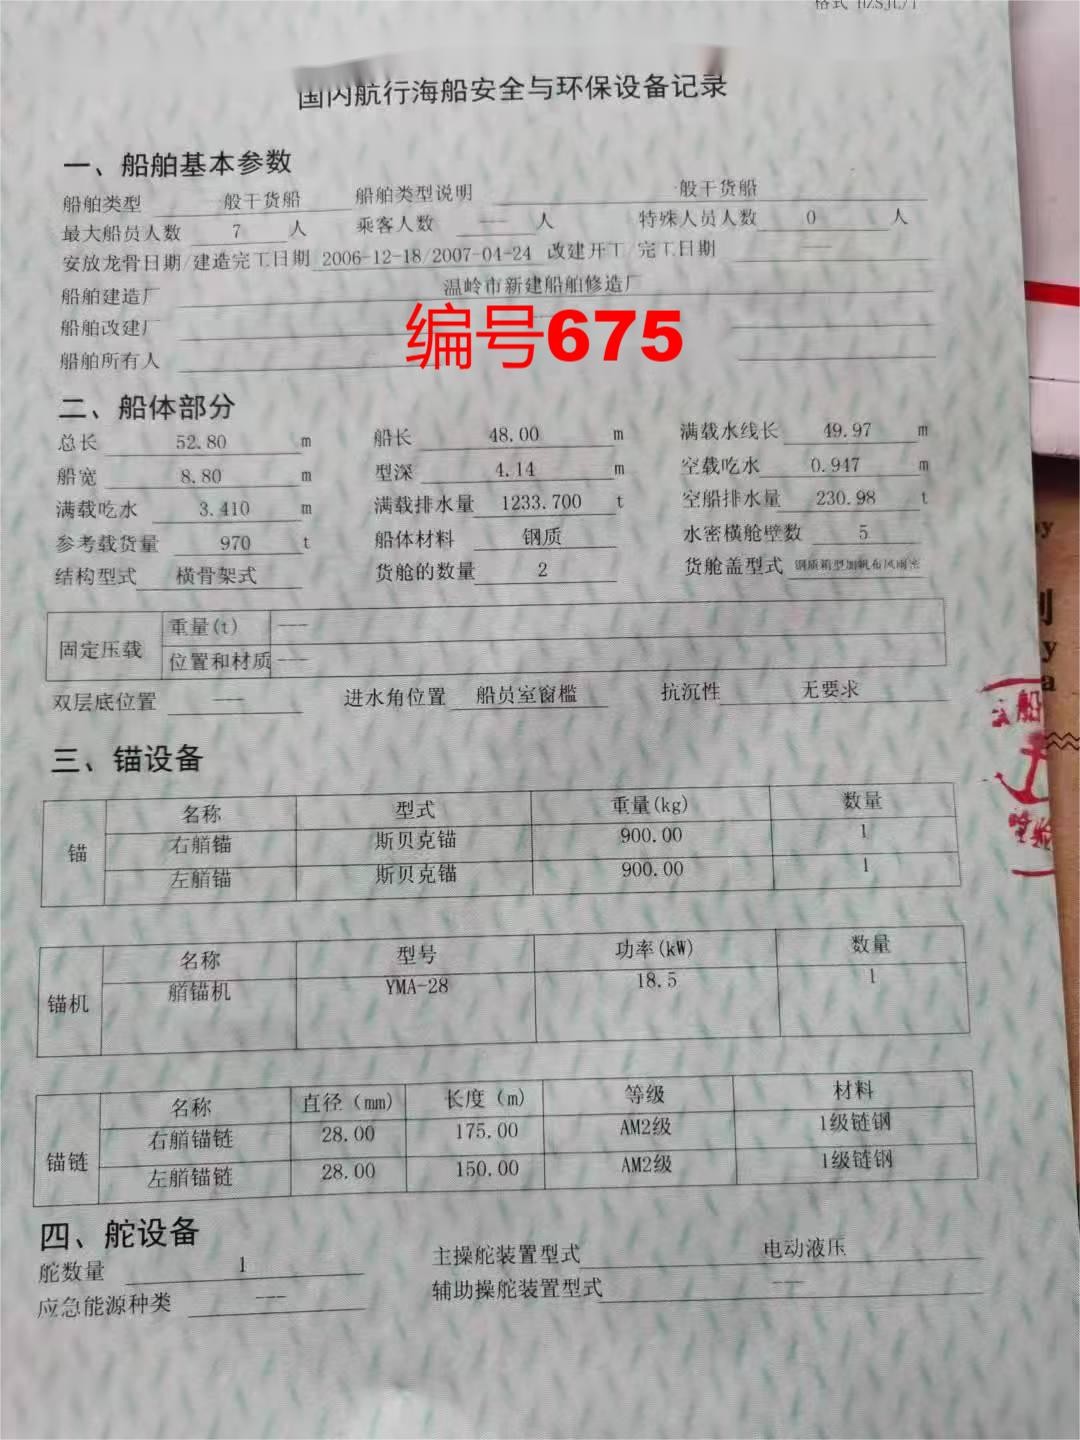 格式 HZSJL/1
国内航行海船安全与环保设备记录
一、船舶基本参数
船舶类型 一般干货船 船舶类型说明 一般干货船
最大船员人数 7 人 乘客人数 --- 人 特殊人员人数 0 人
安放龙骨日期/建造完工日期 2006-12-18/2007-04-24 改建开工/完工日期 ---
船舶建造厂 温岭市新建船舶修造厂
船舶改建厂
船舶所有人
编号675
二、船体部分
总长 52.80 m 船长 48.00 m 满载水线长 49.97 m
船宽 8.80 m 型深 4.14 m 空载吃水 0.947 m
满载吃水 3.410 m 满载排水量 1233.700 t 空船排水量 230.98 t
参考载货量 970 t 船体材料 钢质 水密横舱壁数 5
结构型式 横骨架式 货舱的数量 2 货舱盖型式 钢质箱型加帆布风雨密
固定压载 重量(t) ---
位置和材质 ---
双层底位置 --- 进水角位置 船员室窗槛 抗沉性 无要求
三、锚设备
锚 名称 型式 重量(kg) 数量
右艏锚 斯贝克锚 900.00 1
左艏锚 斯贝克锚 900.00 1
锚机 名称 型号 功率(kW) 数量
艏锚机 YMA-28 18.5 1
锚链 名称 直径(mm) 长度(m) 等级 材料
右艏锚链 28.00 175.00 AM2级 1级链钢
左艏锚链 28.00 150.00 AM2级 1级链钢
四、舵设备
舵数量 1 主操舵装置型式 电动液压
应急能源种类 --- 辅助操舵装置型式 ---
船